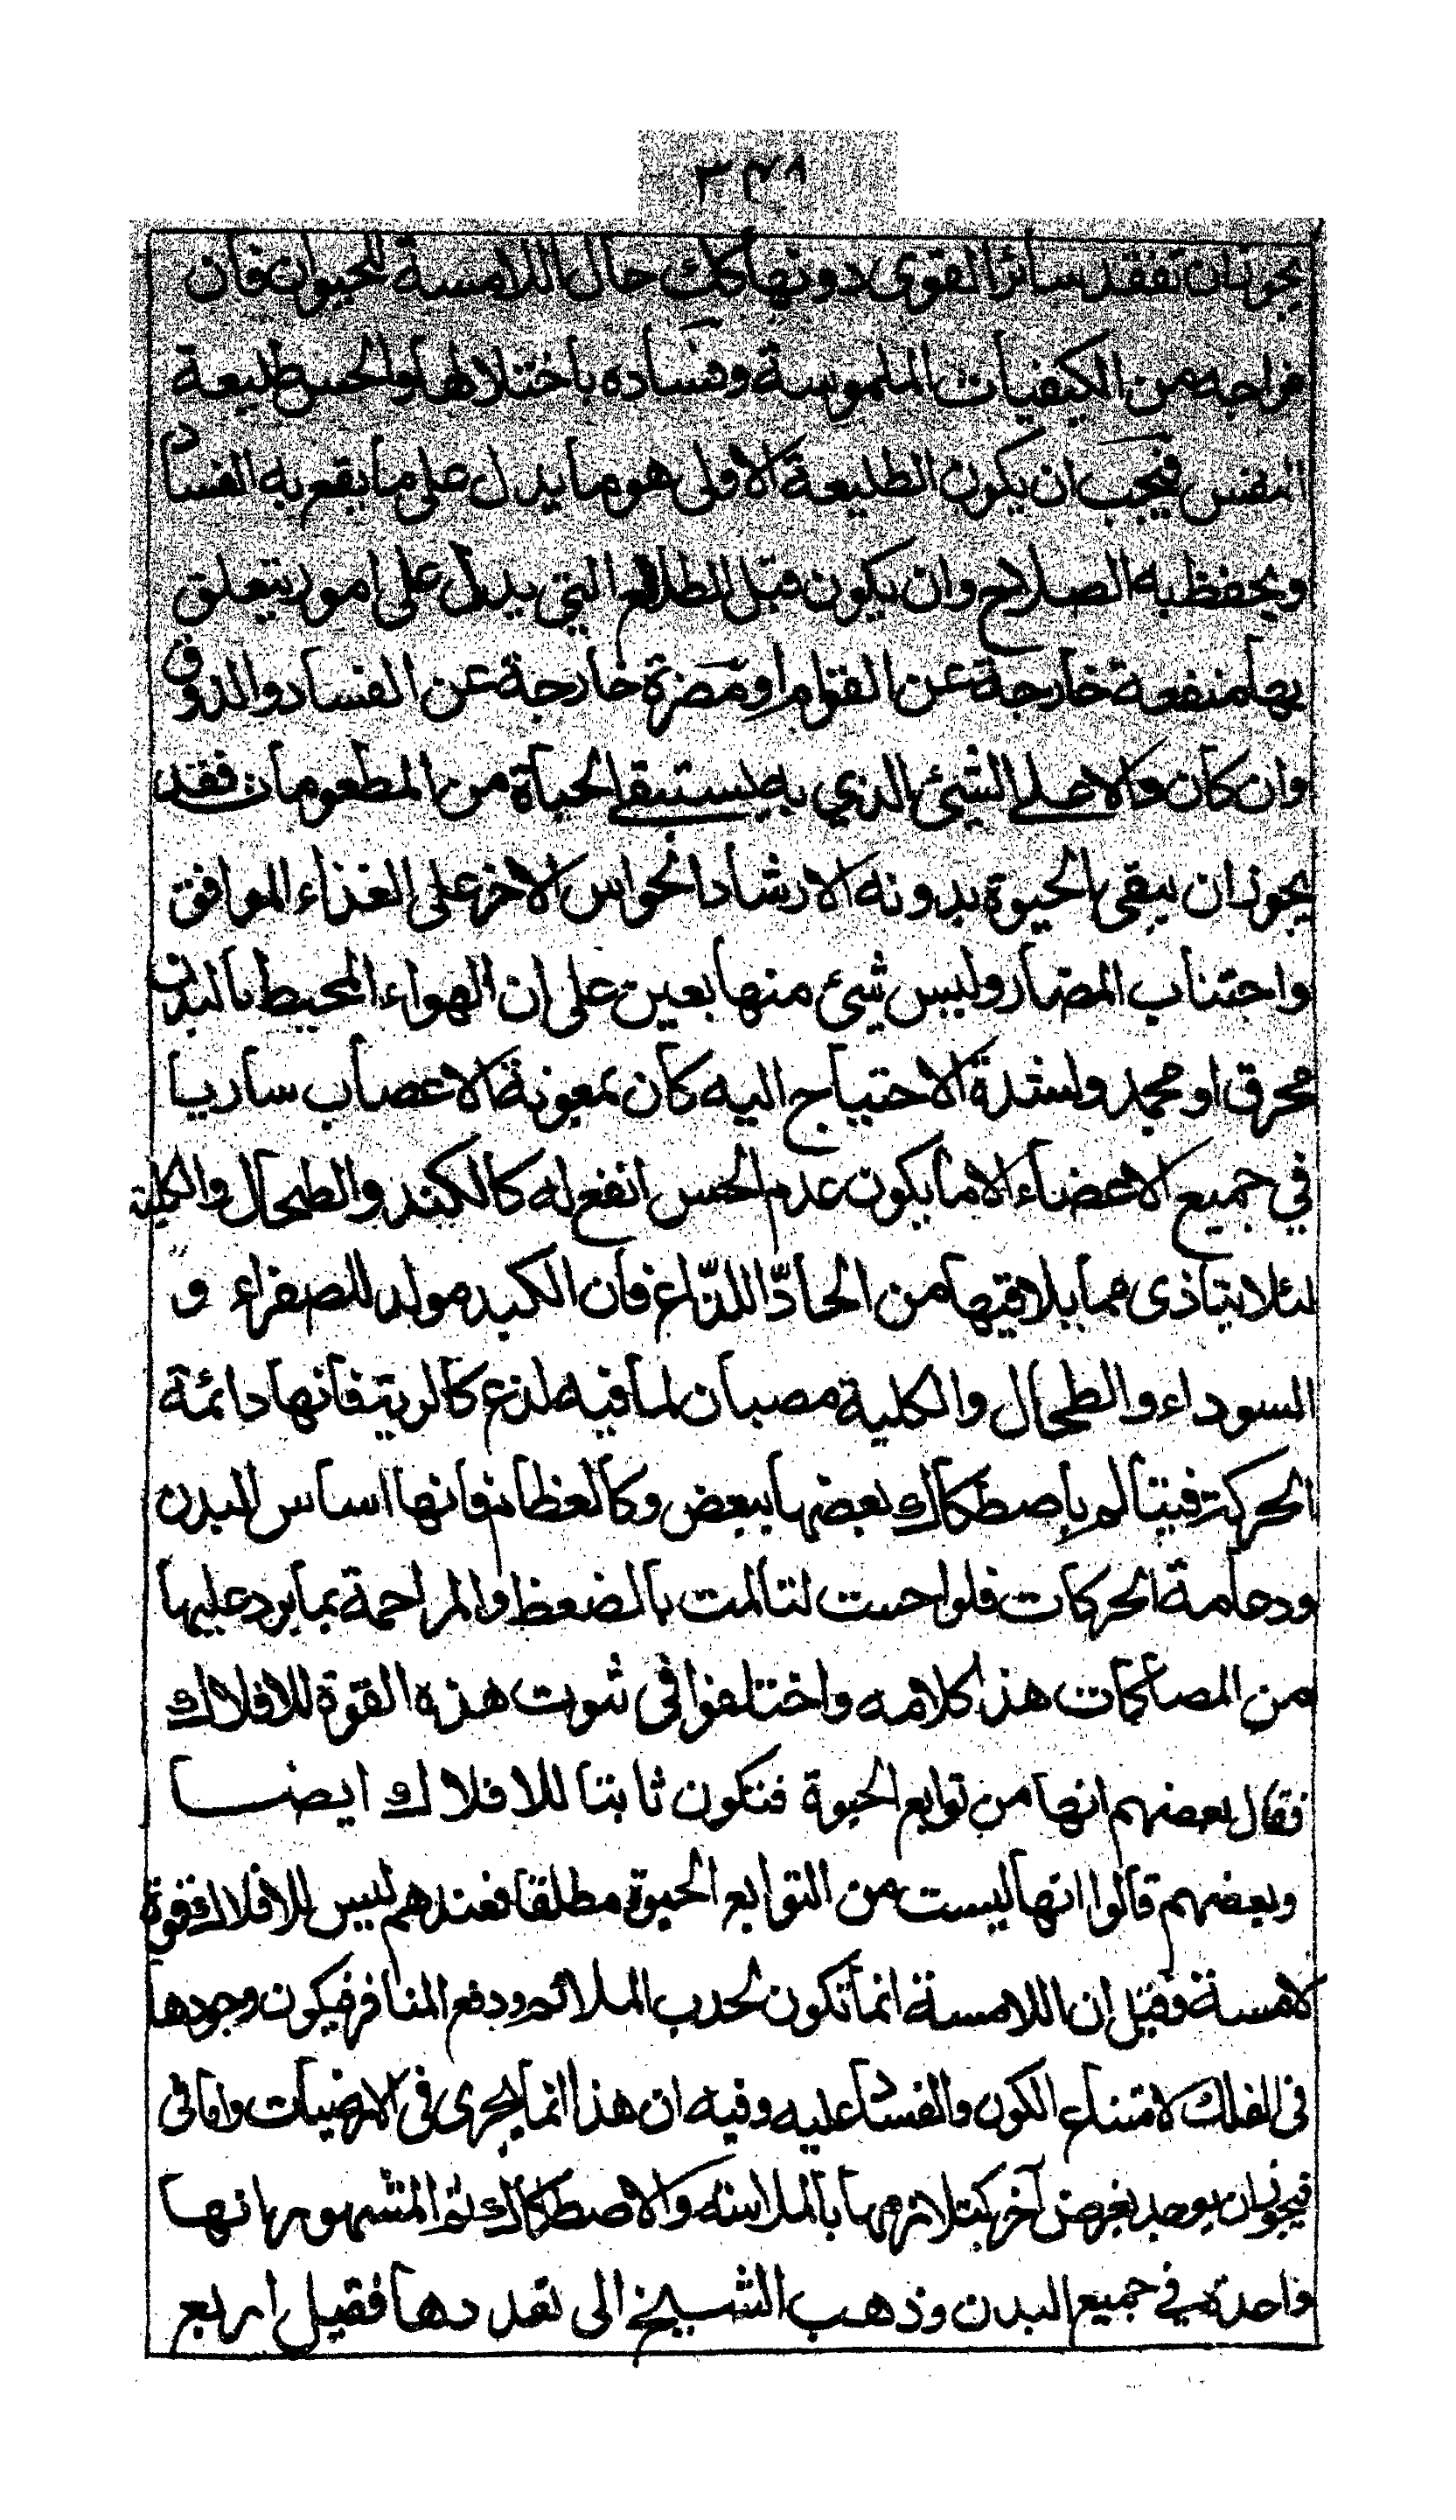 ٣٤٨
يجوز ان تفقد سائر القوى دونها كك حال اللامسة للحيوان فان
مزاجه من الكيفيات الملموسة وفساده باختلالها والحس طليعة
النفس فيجب ان يكون الطليعة الاولى هو ما يدل على ما يقع به الفساد
ويحفظ به الصلاح وان يكون قبل الطلائع التي يدل على امور يتعلق
بها منفعة خارجة عن القوام او مضرة خارجة عن الفساد والذوق
وان كان دالا على الشئ الذي به يستبقى الحياة من المطعومات فقد
يجوز ان يبقى الحيوة بدونه لارشاد الحواس الاخر على الغذاء الموافق
واجتناب المضار وليس شئ منها بعين على ان الهواء المحيط بالبدن
محرق او مجمد ولشدة الاحتياج اليه كان بمعونة الاعصاب ساريا
في جميع الاعضاء الا ما يكون عدم الحس انفع له كالكبد والطحال والكلية
لئلا يتاذى مما يلاقيها من الحادّ اللذّاع فان الكبد مولد للصفراء و
السوداء والطحال والكلية مصبان لما فيه لذع كالرية فانها دائمة
الحركة فيتالم باصطكاك بعضها ببعض وكالعظام فانها اساس البدن
ودعامة الحركات فلو احست لتالمت بالضغط والمزاحمة بما يرد عليها
من المصاكات هذا كلامه واختلفوا في ثبوت هذه القوة للافلاك
فقال بعضهم انها من توابع الحيوة فتكون ثابتا للافلاك ايضا
وبعضهم قالوا انها ليست من التوابع الحيوة مطلقا فعندهم ليس للافلاك قوة
لامسة فقيل ان اللامسة انما تكون لجذب الملائم ودفع المنافر فيكون وجودها
في الفلك لامتناع الكون والفساد عليه وفيه ان هذا انما يجرى في الارضيات واما في
فيجوز ان يوجد بغرض آخر كتلازمها بالملاسة والاصطكاك ثم المشهور انها
واحدة في جميع البدن وذهب الشيخ الى تعددها فقيل اربع